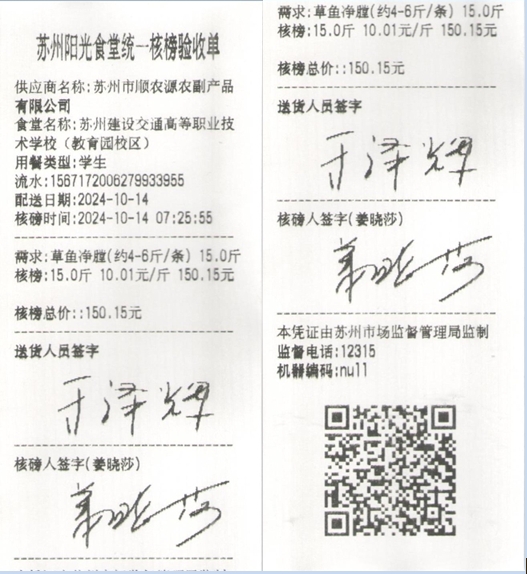 苏州阳光食堂统一核榜验收单
供应商名称:苏州市顺农源农副产品
有限公司
食堂名称:苏州建设交通高等职业技
术学校（教育园校区）
用餐类型:学生
流水:1567172006279933955
配送日期:2024-10-14
核磅时间:2024-10-14 07:25:55
需求:草鱼净膛(约4-6斤/条) 15.0斤
核榜:15.0斤 10.01元/斤 150.15元
核榜总价::150.15元
送货人员签字
于泽辉
核磅人签字(姜晓莎)
需求:草鱼净膛(约4-6斤/条) 15.0斤
核榜:15.0斤 10.01元/斤 150.15元
核榜总价::150.15元
送货人员签字
于泽辉
核磅人签字(姜晓莎)
本凭证由苏州市场监督管理局监制
监督电话:12315
机器编码:null